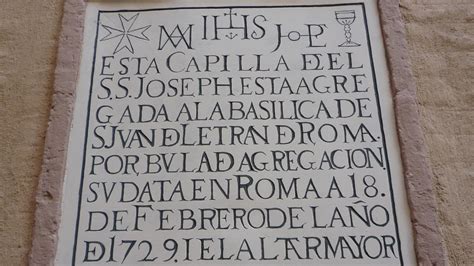 MA IHS JOPE
ESTA CAPILLA DEL
S.S. JOSEPH ESTA AGRE
GADA A LA BASILICA DE
S JVAN D LETRAN D ROMA.
POR BVLA D AGREGACION
SV DATA EN ROMA A 18.
DE FEBRERO DE LAÑO
D 1729. I EL ALTAR MAYOR